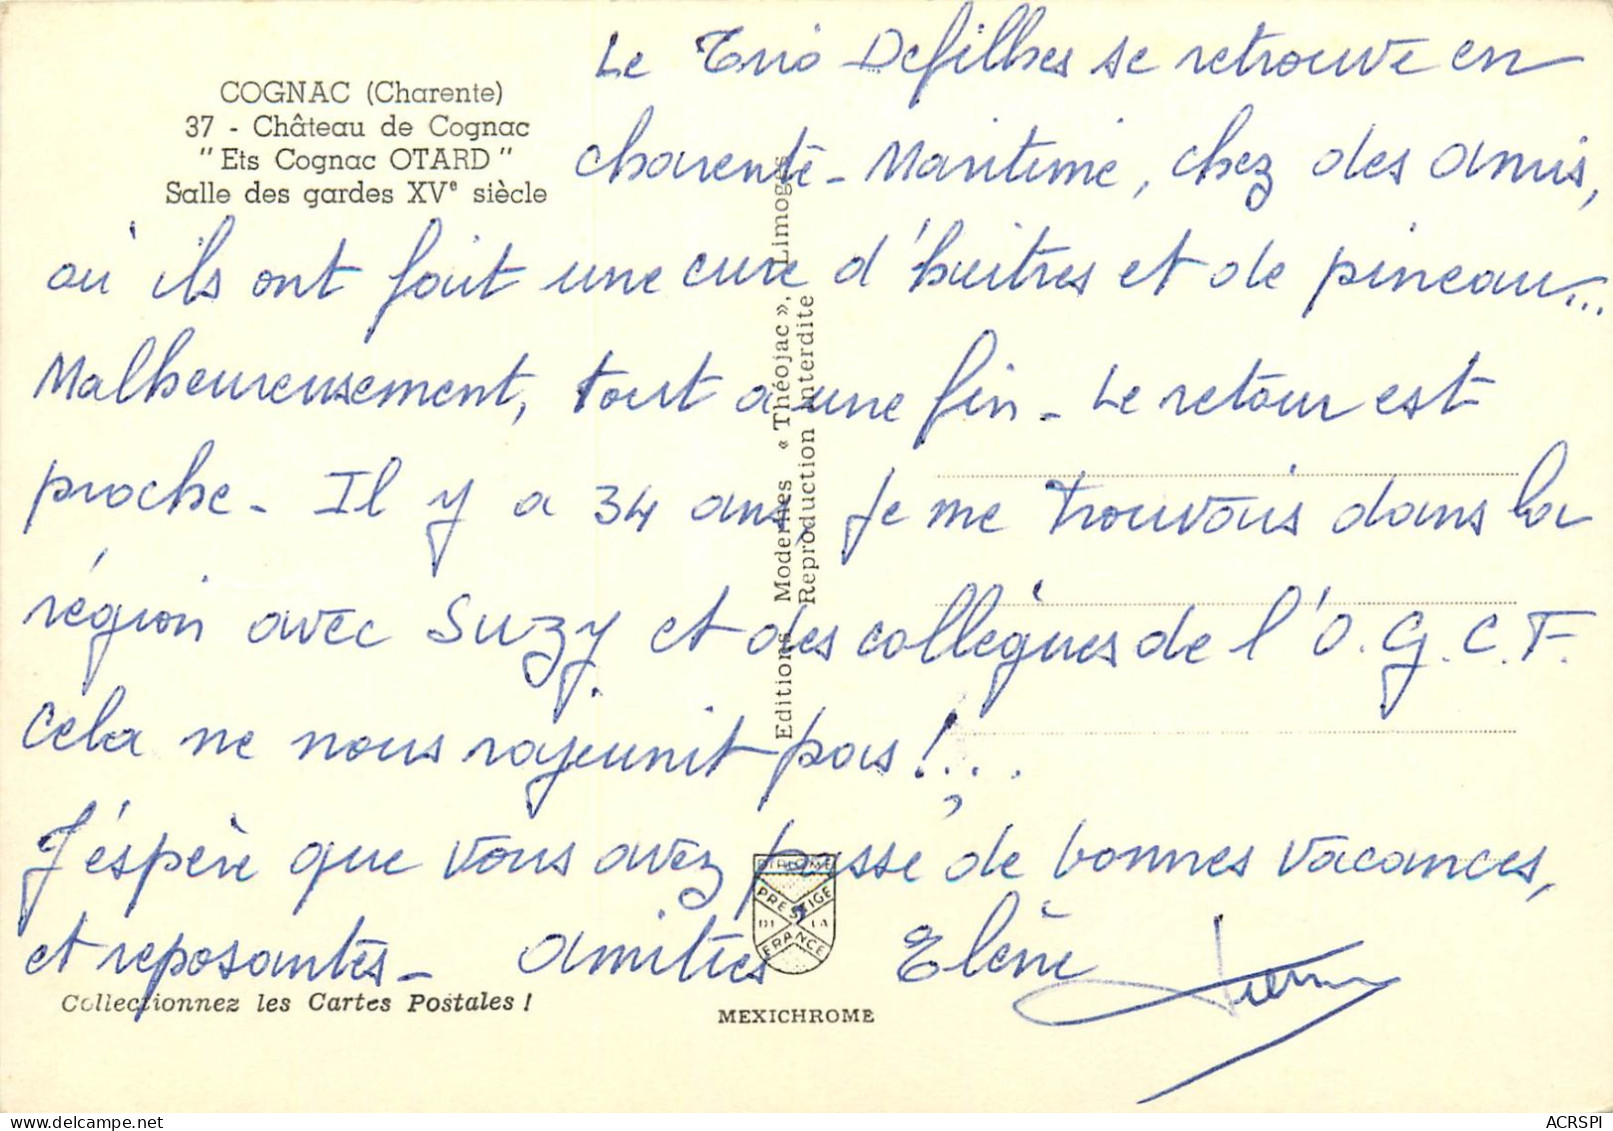 COGNAC (Charente)
37 - Château de Cognac
"Ets Cognac OTARD"
Salle des gardes XVe siècle
Le Trio Defilhes se retrouve en
charente-Maritime, chez des amis,
où ils ont fait une cure d'huitres et de pineau...
Malheureusement, tout a une fin - Le retour est
proche - Il y a 34 ans, je me trouvais dans la
région avec Suzy et des collègues de l'O.G.C.F.
Cela ne nous rajeunit pas !...
J'espère que vous avez passé de bonnes vacances,
et reposantes - Amitiés Elène
Editions Modernes « Théojac », Limoges
Reproduction interdite
DIPLOME
PRESTIGE
DE LA
FRANCE
Collectionnez les Cartes Postales !
MEXICHROME
ACRSPI